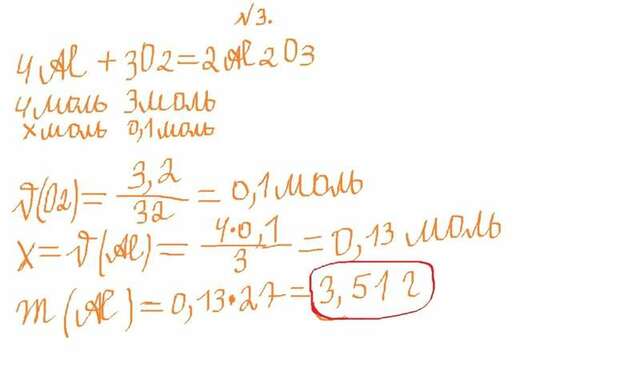 √3.
4Al + 3O2=2Al2O3
4моль 3моль
xмоль 0,1моль
ϑ(O2)= 3,2/32 = 0,1моль
X=ϑ(Al)= 4•0,1/3 =0,13моль
m(Al)=0,13•27=3,51г